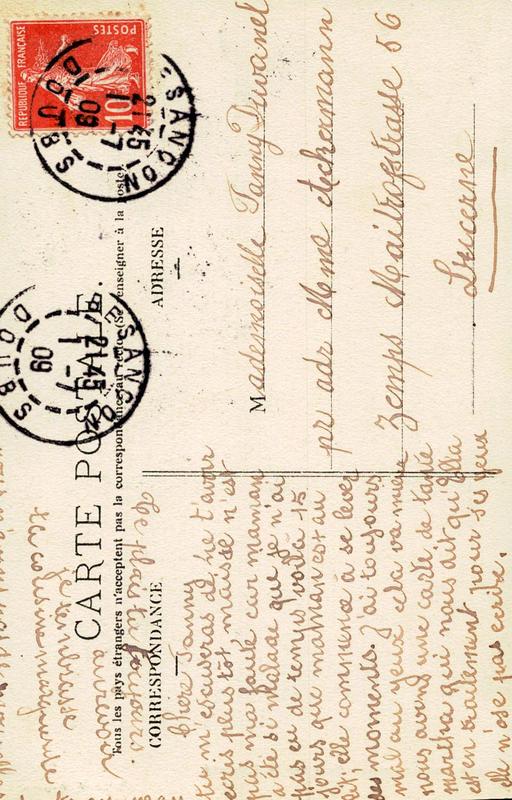 CARTE POSTALE.
Tous les pays étrangers n'acceptent pas la correspondance au recto (Se renseigner à la poste)
CORRESPONDANCE
ADRESSE
REPUBLIQUE FRANÇAISE
POSTES
10
BESANÇON
21 45
1-7
09
DOUBS
BESANÇON
21 45
1-7
09
DOUBS
Mademoiselle Fanny Duvanel
pr adr Mme
Zemps 56
Lucerne
Chère Fanny
tu m'excuseras de ne t'avoir
écris plus tôt mais se n'est
pas ma faute car maman
a été si malade que je n'ai
pus et de temps voilà 15
jours que maman est au
lit, elle commence à se lever
des moments. J'ai toujours
mal au yeux cela va mieux
nous avons une carte de tante
martha qui nous dit qu'Ella
est en traitement pour ses yeux
elle n'ose pas ecrire.
te plais tu toujours
au revoir
je t'embrasse